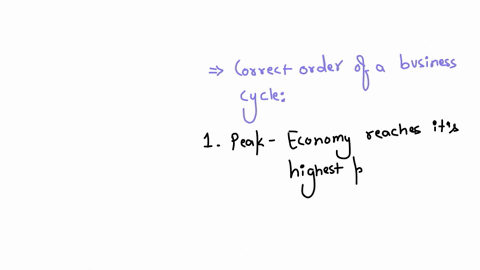 ⇒ Correct order of a business
cycle:
1. Peak - Economy reaches it's
highest p